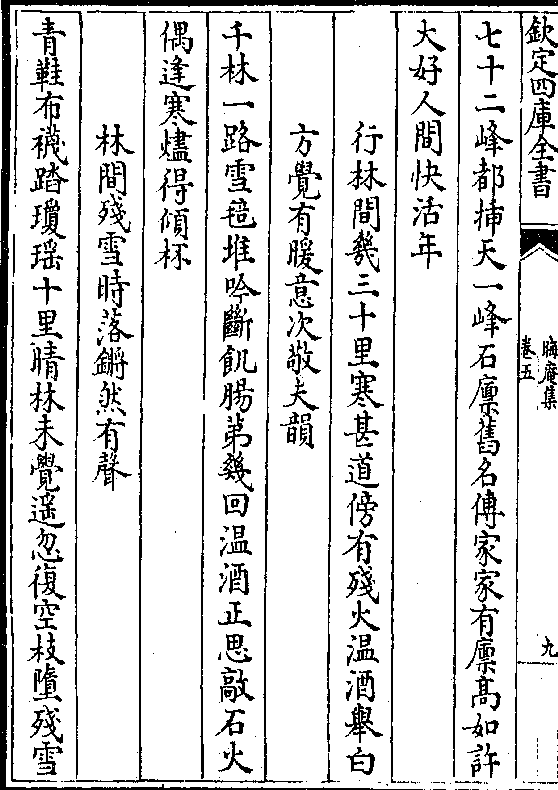 欽定四庫全書
晦庵集
卷五
九
七十二峰都揷天一峰石廩舊名傳家家有廩髙如許
大好人間快活年
行林間幾三十里寒甚道傍有殘火温酒舉白
方覺有暖意次敬夫韻
千林一路雪毰堆吟斷飢腸第幾回温酒正思敲石火
偶逢寒燼得傾杯
林間殘雪時落鏘然有聲
青鞋布襪踏瓊瑶十里晴林未覺遥忽復空枝墮殘雪